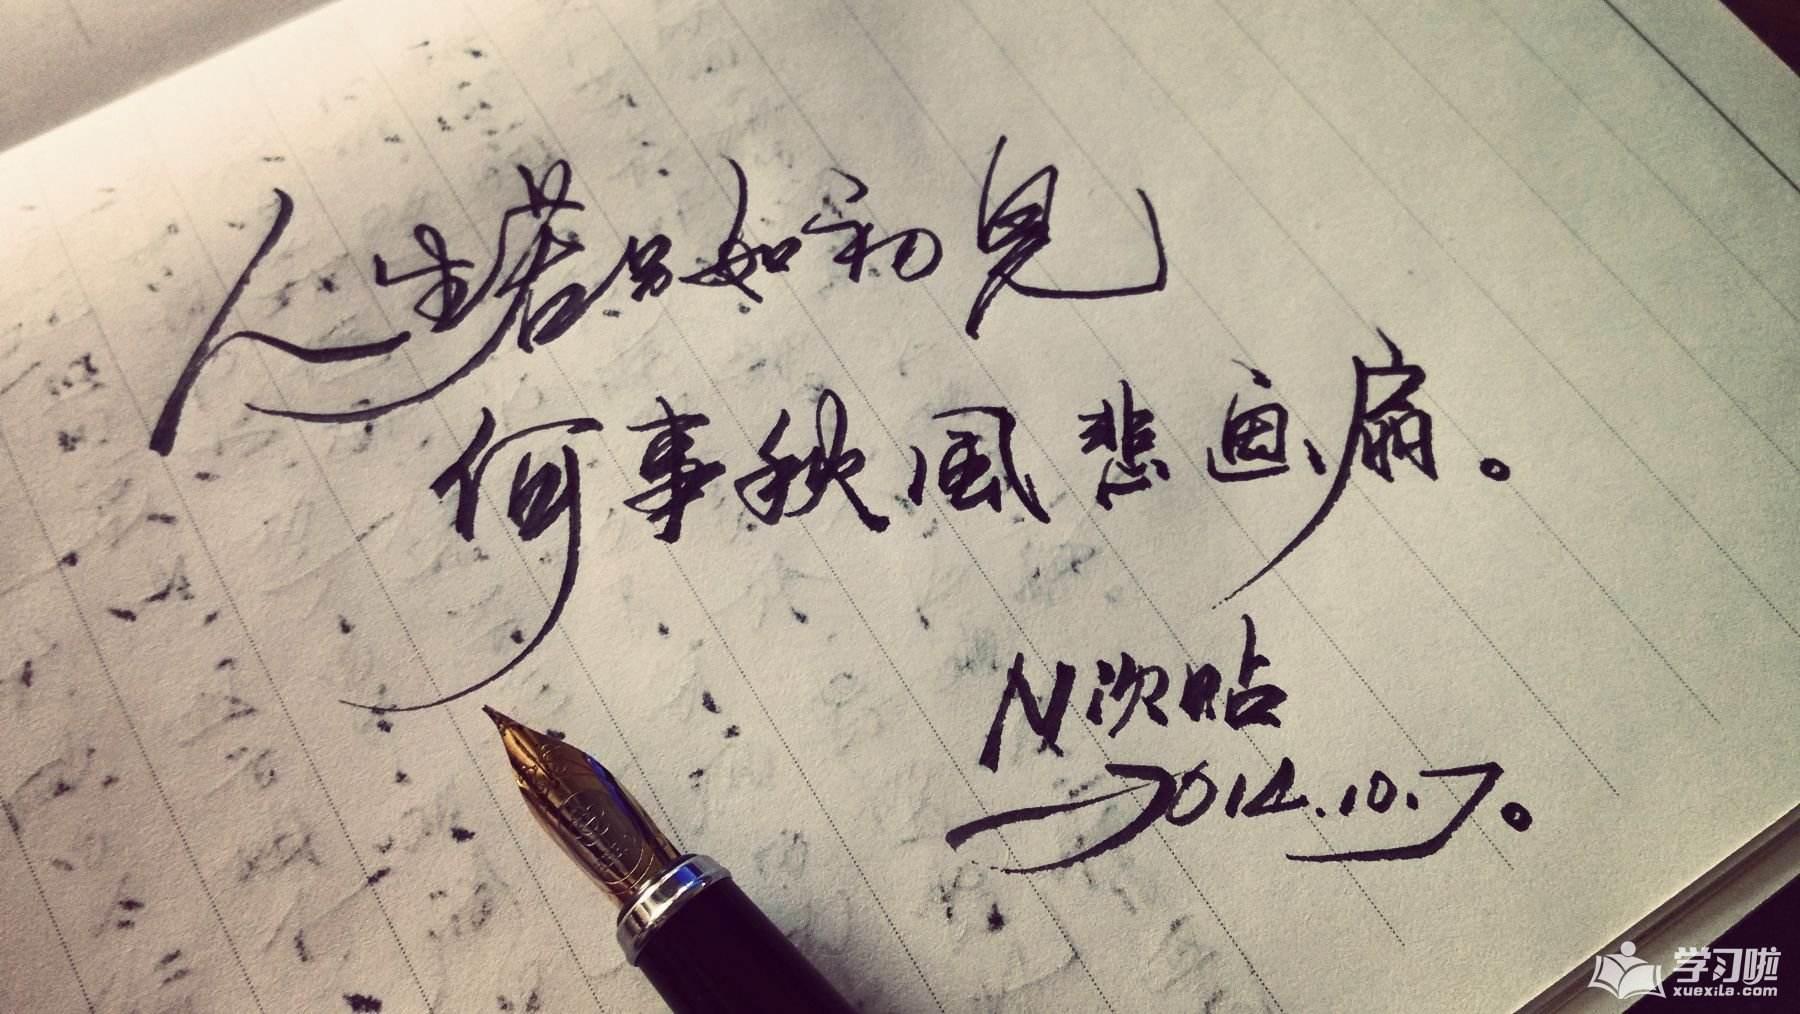 人生若只如初見
何事秋風悲画扇。
N次贴
2014.10.7。
学习啦
xuexila.com